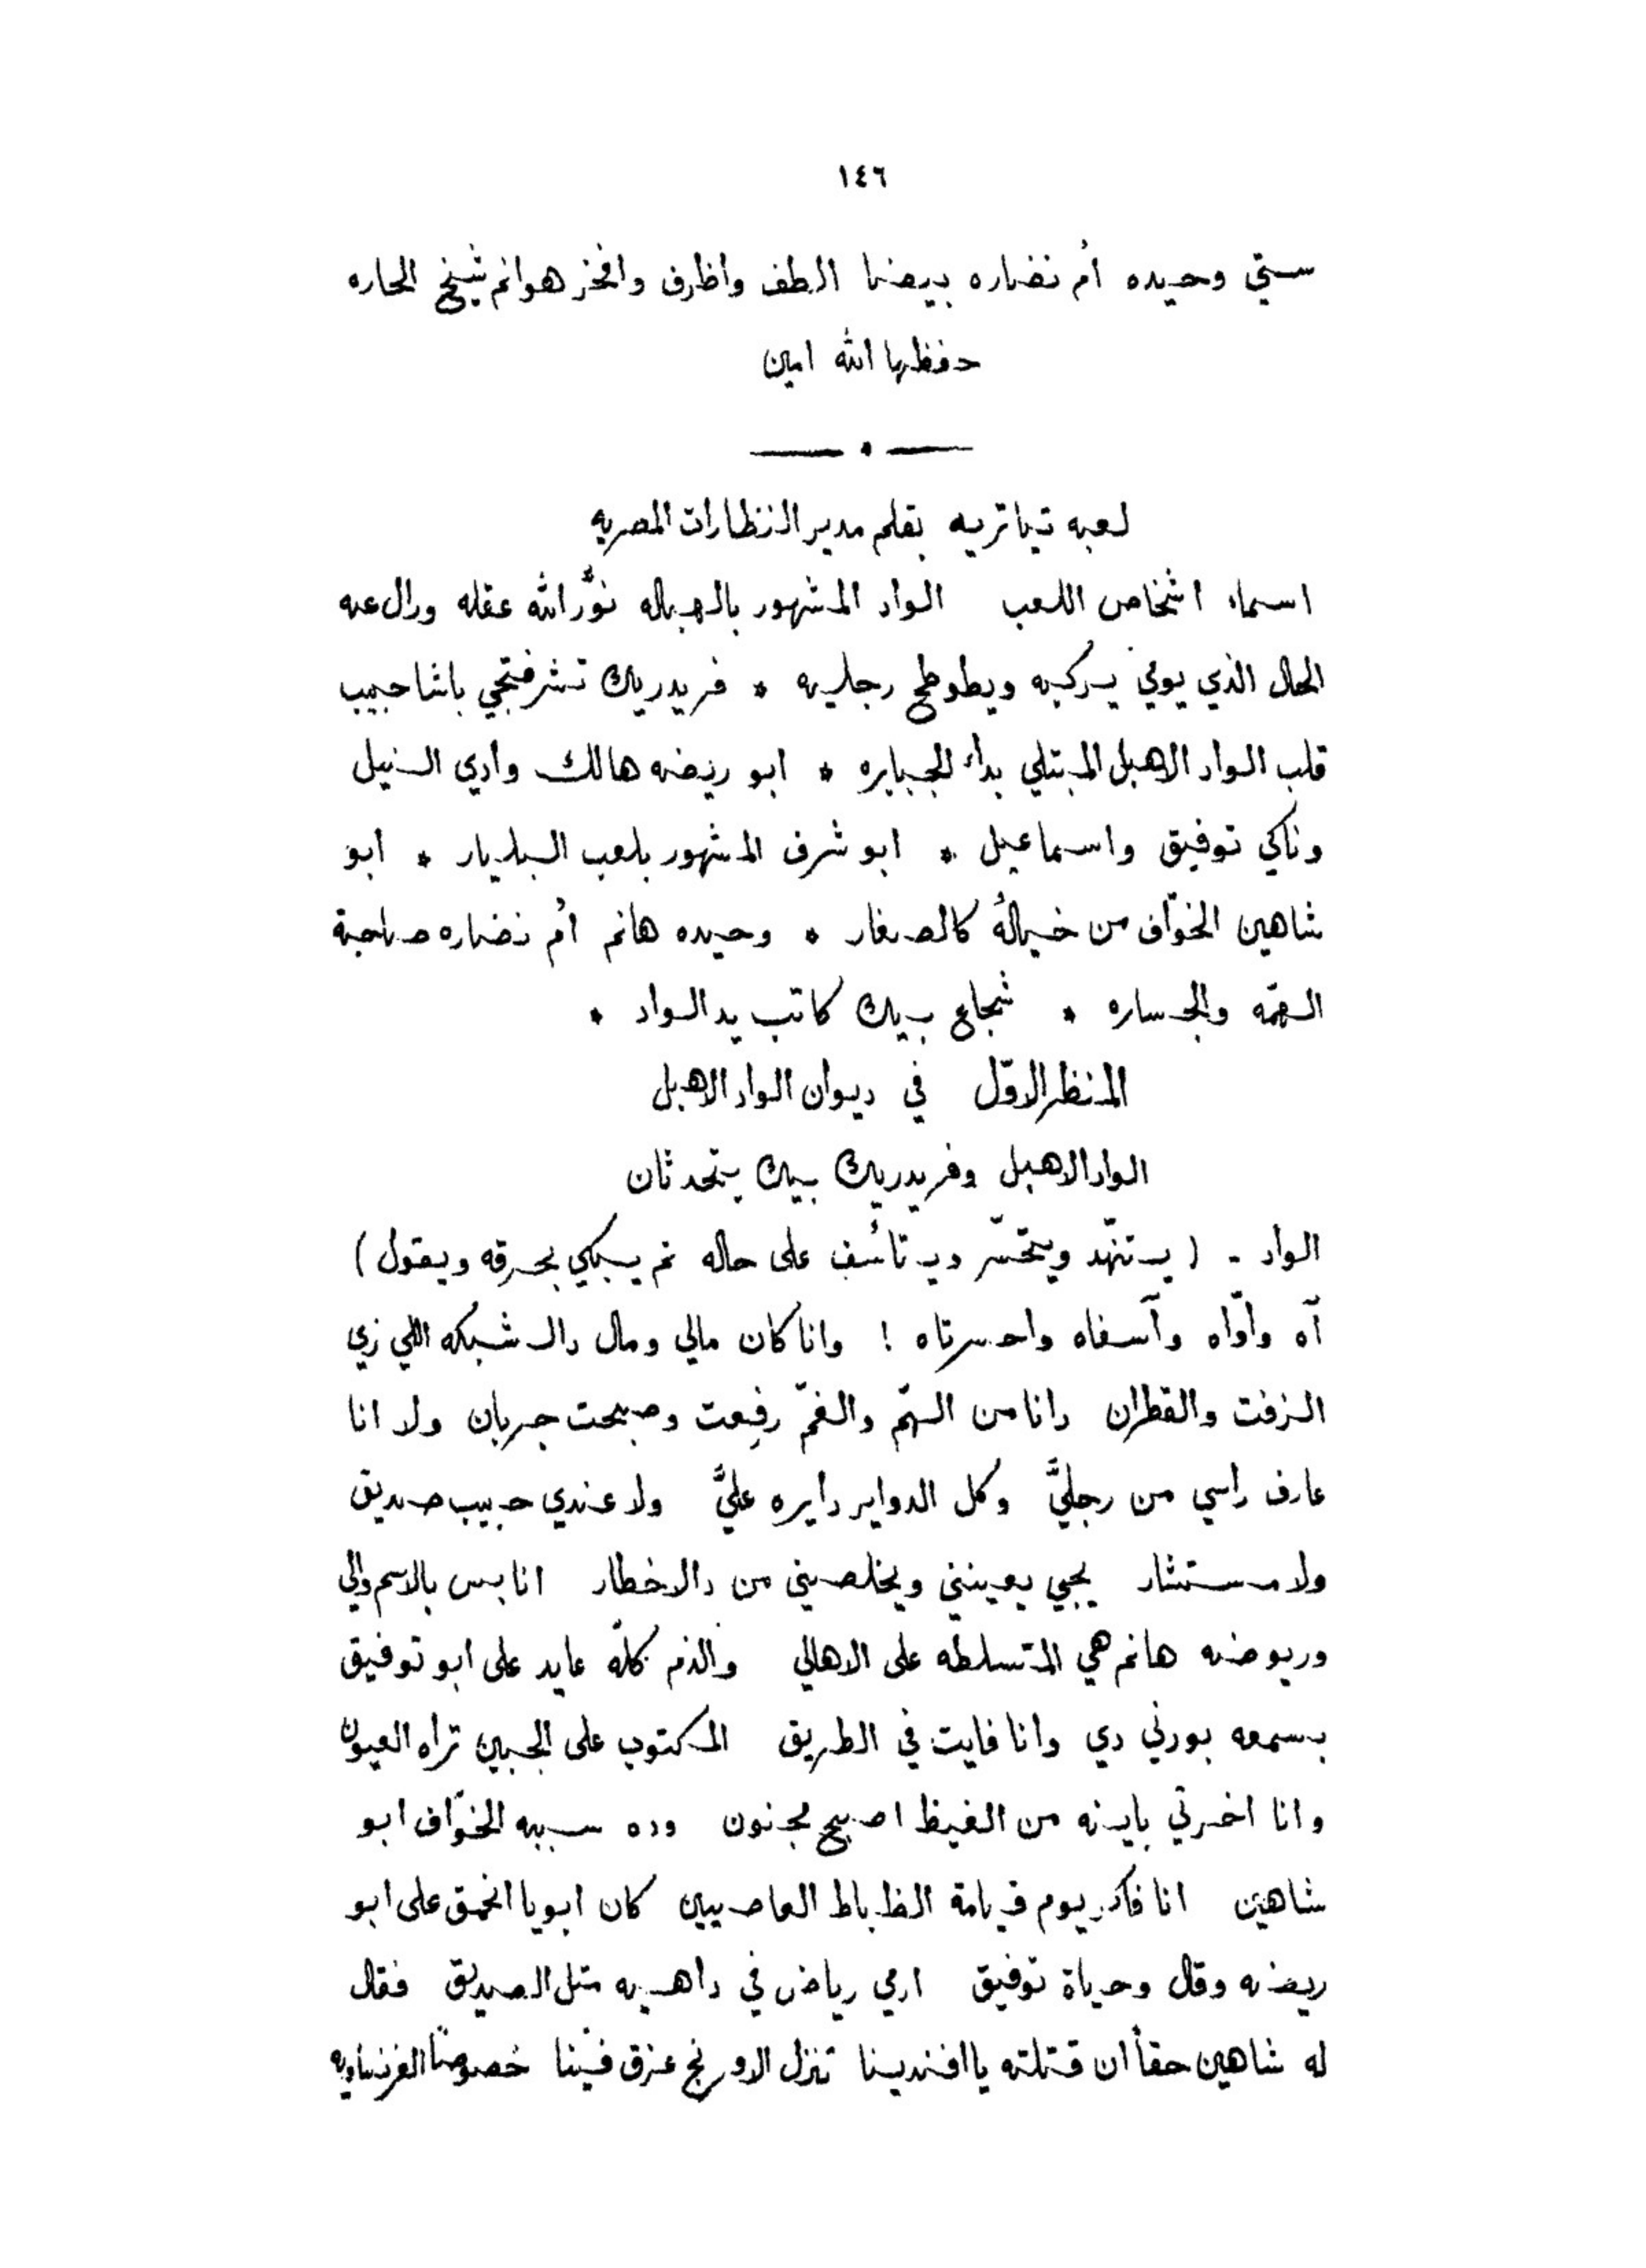 ١٤٦
ستي وحيده أم نضاره بيضا الطف واظرف وافخر هوانم شيخ الحاره
حفظها الله امين
لعبه تياتريه بقلم مدير النظارات المصريه
اسماء اشخاص اللعب الواد المشهور بالهباله نوّر الله عقله وزال عنه
الحال الذي يوتي يركبه ويطوطح رجليه * فريدريك تشرفتجي باشا حبيب
قلب الواد الاهبل المبتلي بداء الجبابره * ابو ريضه هالك وادي النيل
وناكي توفيق واسماعيل * ابو شرف المشهور بلعب البليار * ابو
شاهين الخوّاف من خياله كالصغار * وحيده هانم أم نضاره صاحبة
الهمّه والجساره * شجاع بيك كاتب يد الواد *
المنظر الاوّل في ديوان الواد الاهبل
الواد الاهبل وفريدريك بيك يتحدثان
الواد - (يستنهّد ويتحسّر ويتأسّف على حاله ثم يبكي بحرقه ويقول)
آه واوّاه وآسفاه واحسرتاه ! وانا كان مالي ومال دالشبكه اللي زي
الزفت والقطران دانا من الهمّ والغمّ رفعت وصبحت جربان ولا انا
عارف راسي من رجليَّ وكل الدواير دايره عليَّ ولا عندي حبيب صديق
ولا مستشار يجي يعينني ويخلصيني من دالاخطار انا بس بالاسم والي
وريوضه هانم هي المتسلطه على الاهالي والذم كلّه عايد على ابو توفيق
بسمعه بودني دي وانا فايت في الطريق المكتوب على الجبين تراه العيون
وانا اخرتي باينه من الغيظ اصبح مجنون وده سببه الخوّاف ابو
شاهين انا فاكر يوم قيامة الظباط العاصيين كان ابويا انحمق على ابو
ريضه وقال وحياة توفيق ارمي رياض في داهيه متل الصديق فقال
له شاهين حقاً ان قتلته يا افندينا تنزل الاورنج عزق فينا خصوصاً الفرنساويه